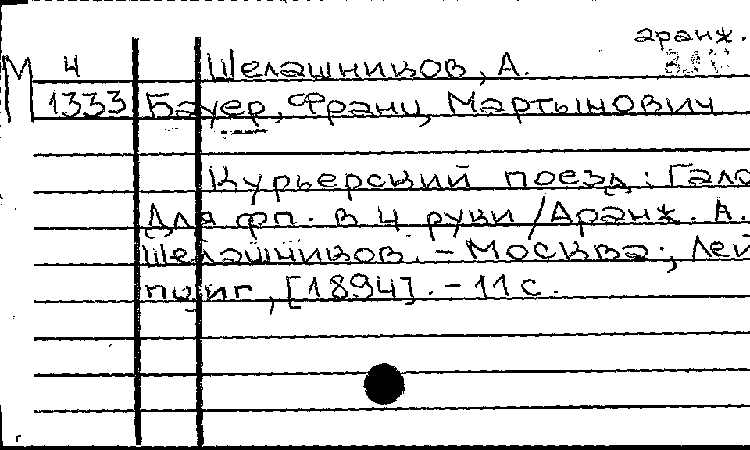 аранж.
М 4 Шелашников, А.
1333 Бауер, Франц Мартынович
Курьерский поезд: Гало
Для фп. в 4 руки / Аранж. А.
Шелашников. - Москва; Лей
пциг, [1894]. - 11 с.